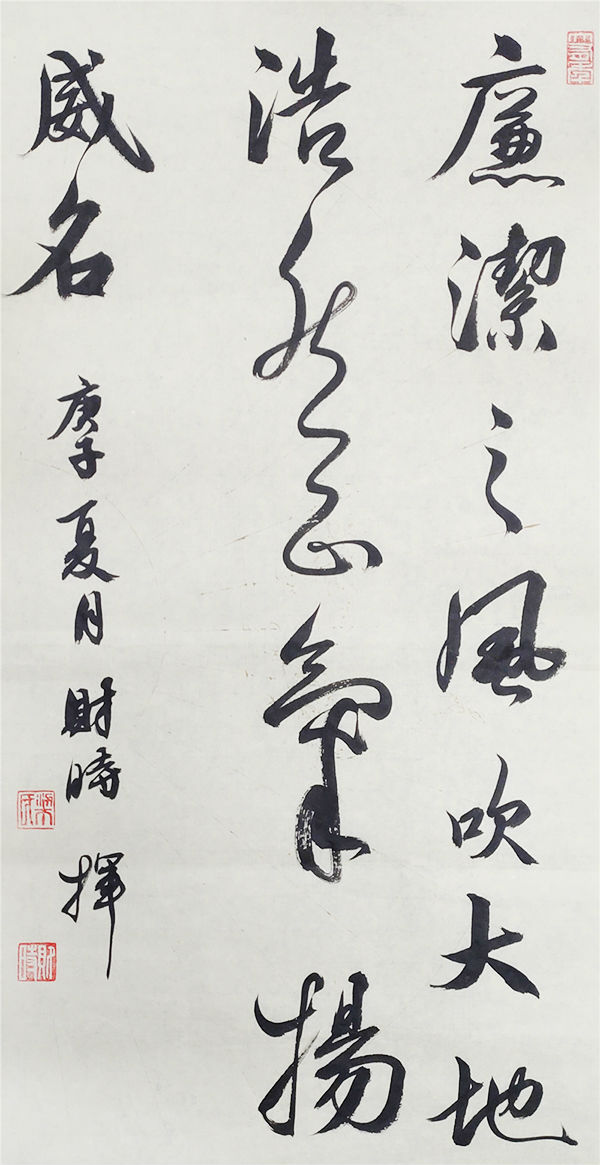 廉潔之風吹大地
浩然正氣揚
威名
庚子夏月財時揮